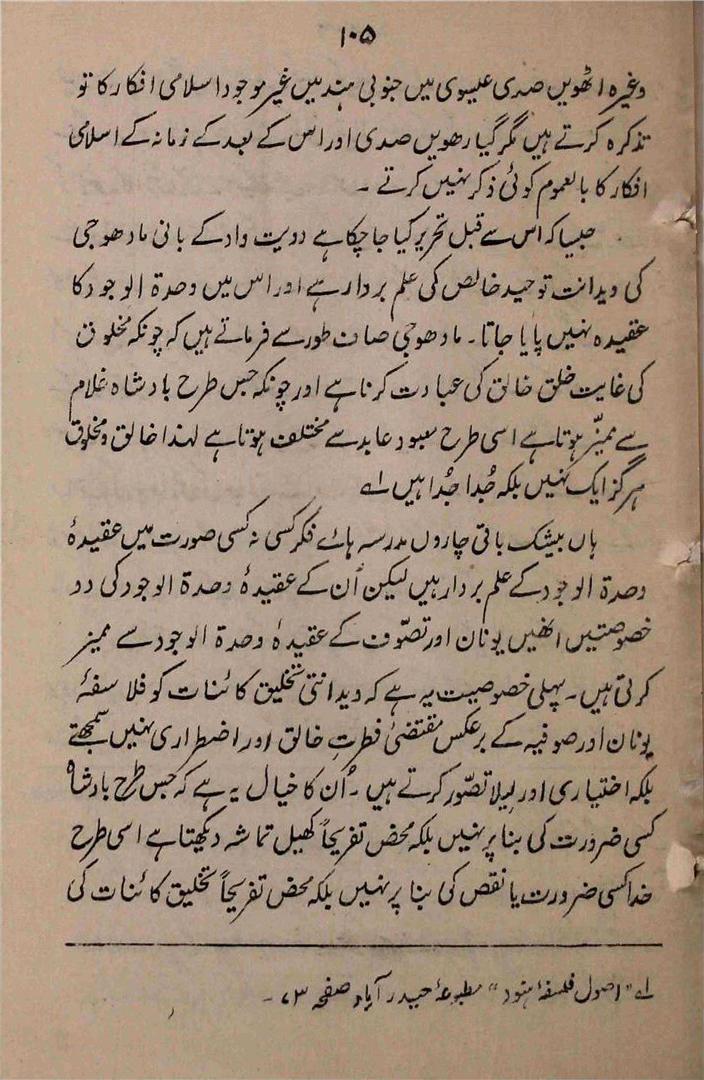 ۱۰۵
وغیرہ اٹھویں صدی عیسوی میں جنوبی ہند میں غیر موجود اسلامی افکار کا تو
تذکرہ کرتے ہیں مگر گیارھویں صدی اور اس کے بعد کے زمانہ کے اسلامی
افکار کا بالعموم کوئی ذکر نہیں کرتے ۔
جیسا کہ اس سے قبل تحریر کیا جا چکا ہے دویت واد کے بانی مادھوجی
کی ویدانت توحید خالص کی علم بردار ہے اور اس میں وحدۃ الوجود کا
عقیدہ نہیں پایا جاتا۔ مادھوجی صاف طور سے فرماتے ہیں کہ چونکہ مخلوق
کی غایت خلق خالق کی عبادت کرنا ہے اور چونکہ جس طرح بادشاہ غلام
سے ممیّز ہوتا ہے اسی طرح معبود عابد سے مختلف ہوتا ہے لہذا خالق و مخلوق
ہرگز ایک نہیں بلکہ جُدا جُدا ہیں لے
ہاں بیشک باقی چاروں مدرسہ ہائے فکر کسی نہ کسی صورت میں عقیدۂ
وحدۃ الوجود کے علم بردار ہیں لیکن اُن کے عقیدۂ وحدۃ الوجود کی دو
خصوصتیں انھیں یونان اور تصوّف کے عقیدۂ وحدۃ الوجود سے ممیز
کرتی ہیں۔ پہلی خصوصیت یہ ہے کہ ویدانتی تخلیق کائنات کو فلاسفۂ
یونان اور صوفیہ کے برعکس مقتضیٰ فطرتِ خالق اور اضطراری نہیں سمجھتے
بلکہ اختیاری اور لِیلا تصّور کرتے ہیں ۔ اُن کا خیال یہ ہے کہ جس طرح بادشاہ
کسی ضرورت کی بنا پر نہیں بلکہ محض تفریحاً کھیل تماشہ دیکھتا ہے اسی طرح
خدا کسی ضرورت یا نقص کی بنا پر نہیں بلکہ محض تفریحاً تخلیق کائنات کی
لے "اصول فلسفۂ ہنود" مطبوعۂ حیدرآباد صفحہ ۷۳ ۔